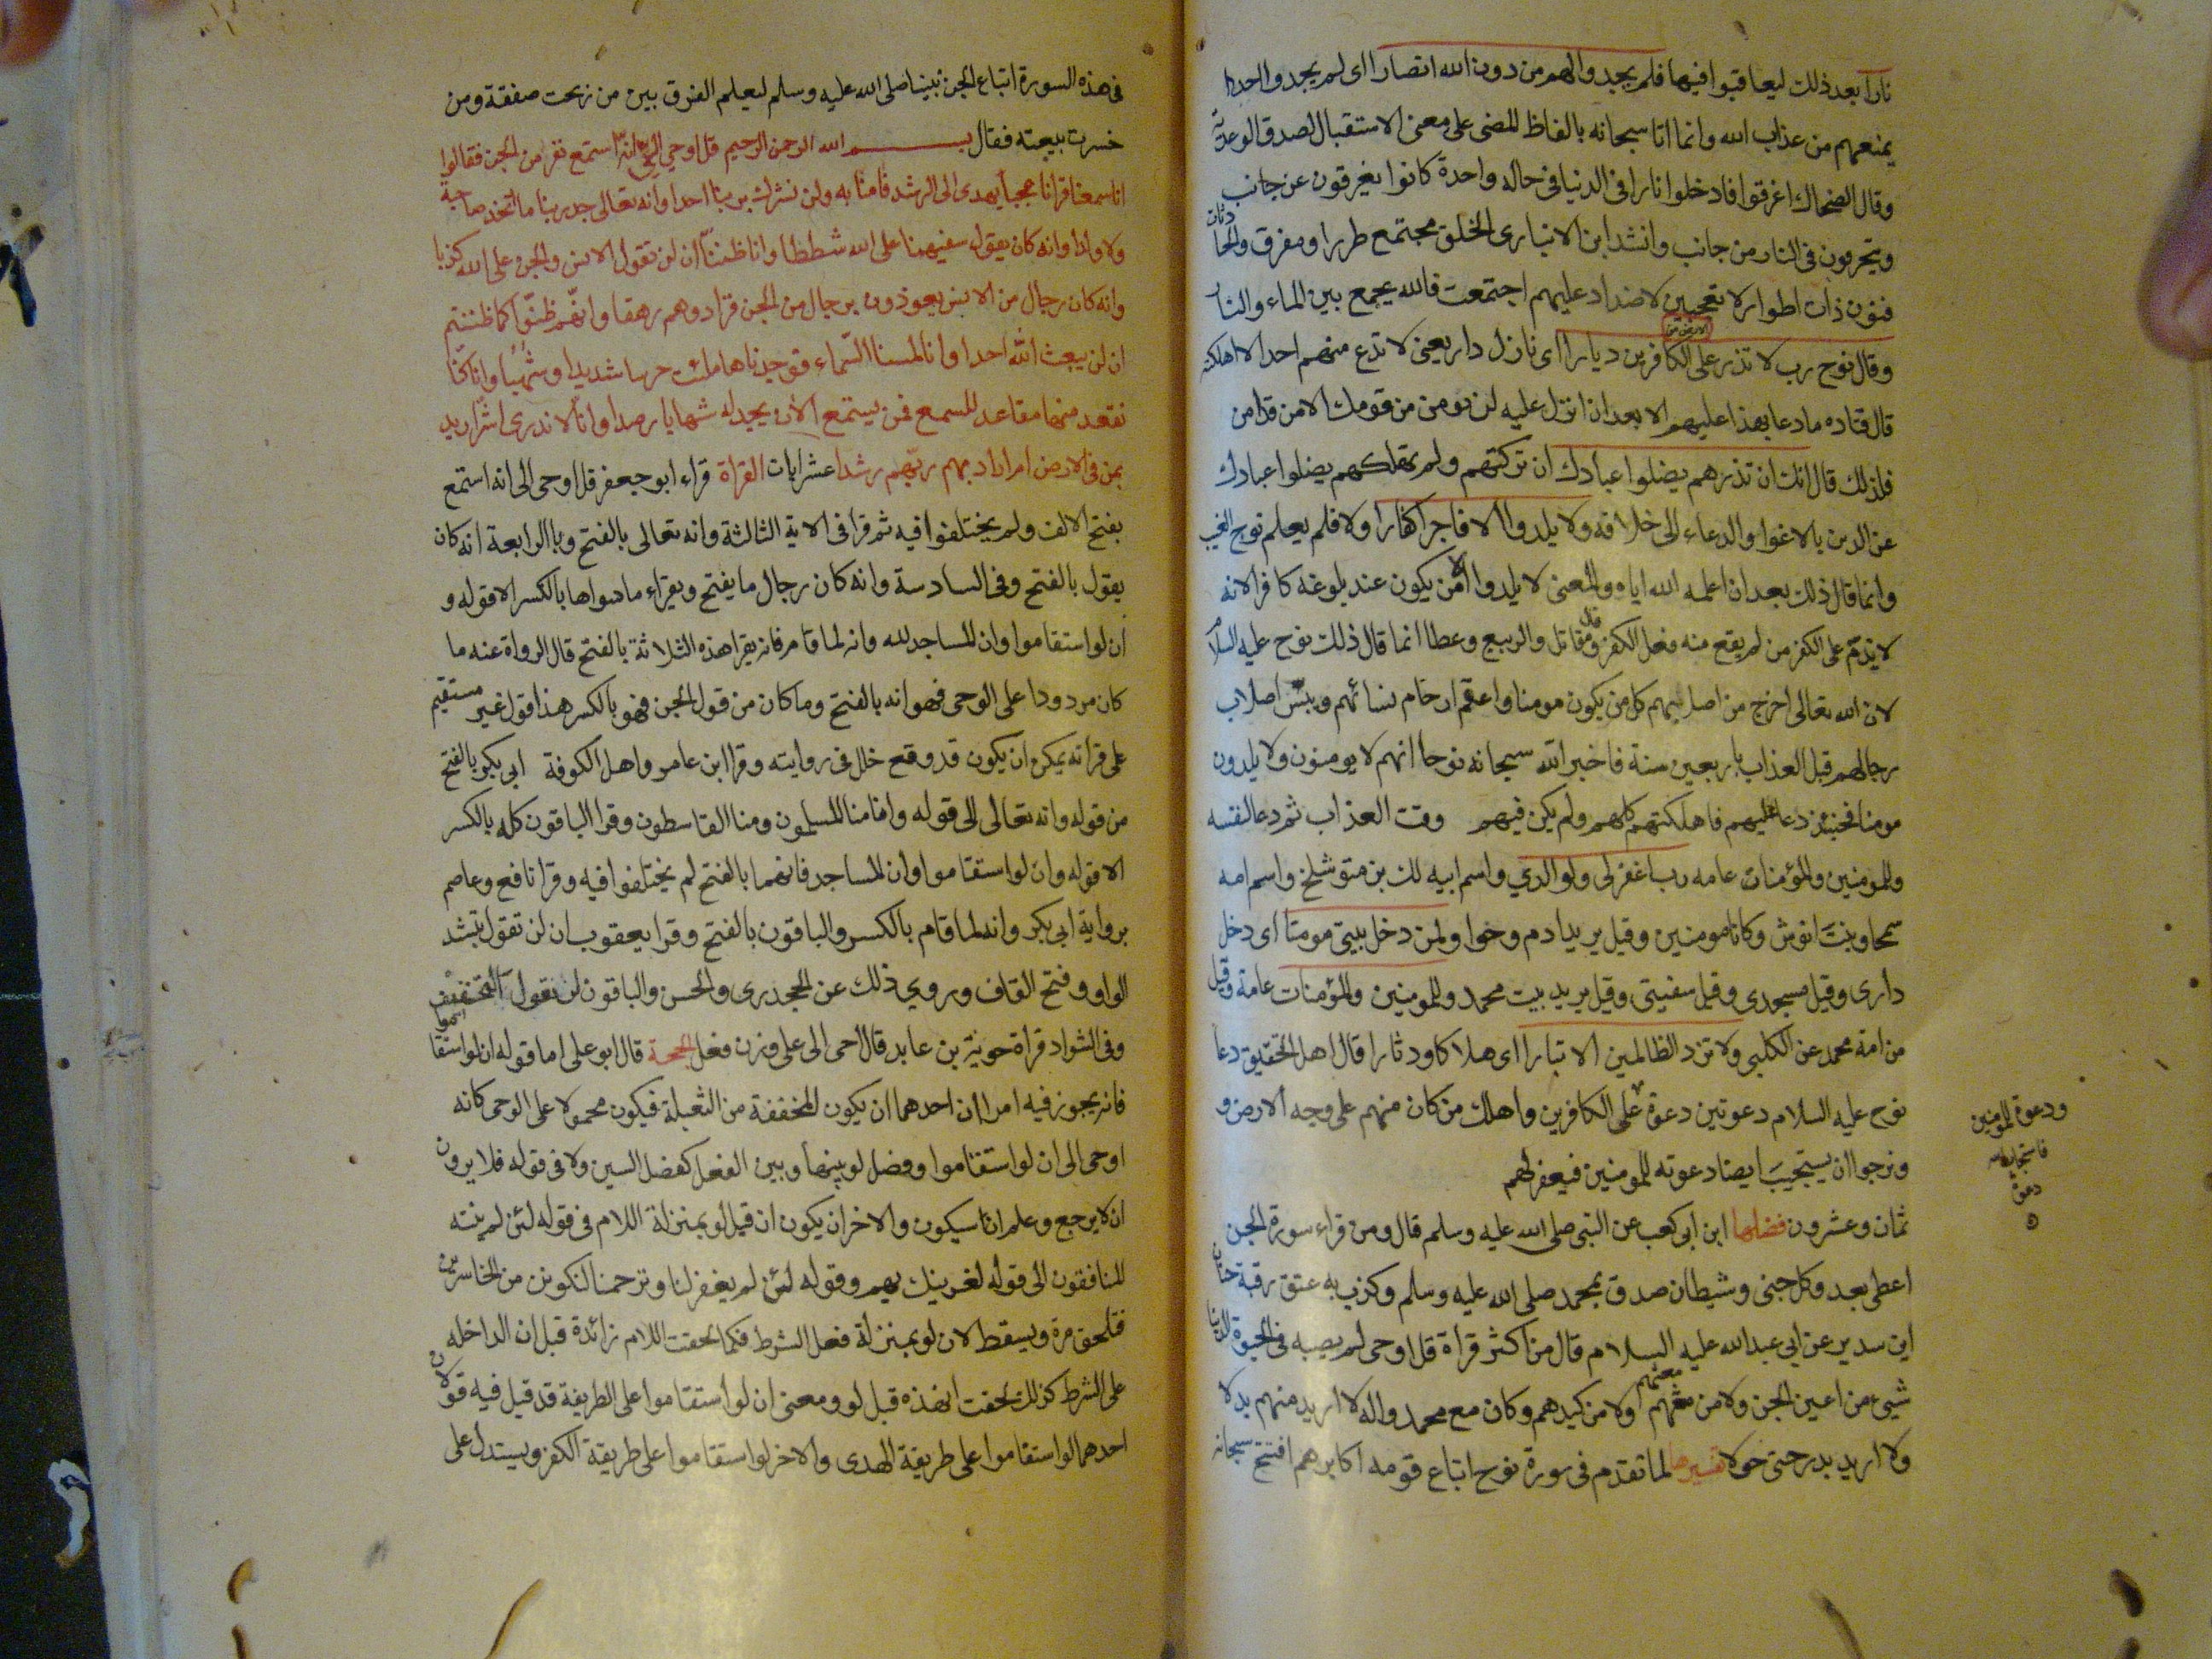 نارا بعد ذلك ليعاقبوا فيها فلم يجدوا لهم من دون الله انصارا اى لم يجدوا احدا
يمنعهم من عذاب الله وانما اتا سبحانه بالفاظ المضى على معنى الاستقبال لصدق الوعد به
وقال الضحاك اغرقوا فادخلوا نارا فى الدنيا فى حاله واحدة كانوا يغرقون عن جانب
ويحرقون فى النار من جانب وانشد ابن الانبارى الخلق مجتمع طررا ومفرق والحادثات
فنون ذات اطوار لا تعجبين لاضداد عليهم اجتمعت فالله يجمع بين الماء والنار
وقال نوح رب لا تذر على الارض من الكافرين ديارا اى نازل دار يعنى لا تدع منهم احدا الا اهلكته
قال قتاده ما دعا بهذا عليهم الا بعد ان انزل عليه لن يومن من قومك الا من قد امن
فلذلك قال انك ان تذرهم يضلوا عبادك ان تركتهم ولم تهلكهم يضلوا عبادك
عن الدين بالاغوا والدعاء الى خلافه ولا يلدوا الا فاجرا كفارا ولا فلم يعلم نوح الغيب
وانما قال ذلك بعد ان اعلمه الله اياه والمعنى لا يلدوا الا من يكون عند بلوغه كافرا لانه
لا يذم على الكفر من لم يقع منه فعل الكفر وقال مقاتل والربيع وعطا انما قال ذلك نوح عليه السلام
لان الله تعالى اخرج من اصلابهم كل من يكون مومنا واعقم ارحام نسائهم ويبس اصلاب
رجالهم قبل العذاب باربعين سنة فاخبر الله سبحانه نوحا انهم لا يومنون ولا يلدون
مومنا فحينئذ دعا عليهم فاهلكتهم كلهم ولم يكن فيهم وقت العذاب ثم دعا لنفسه
وللمومنين والمؤمنات عامه رب اغفر لى ولوالدي واسم ابيه لمك بن متوشلخ واسم امه
سمحا وبنت انوش وكانا مومنين وقيل يريد ادم وحوا ولمن دخل بيتى مومنا اى دخل
دارى وقيل مسجدى وقيل سفينتى وقيل يريد بيت محمد وللمومنين والمؤمنات عامة وقيل
من امة محمد عن الكلبى ولا تزد الظالمين الا تبارا اى هلاكا ودثارا قال اهل التحقيق دعا
نوح عليه السلام دعوتين دعوة على الكافرين واهلك من كان منهم على وجه الارض و
ودعوة للمومنين
فاستجاب له
دعوة
ونرجوا ان يستجيب ايضا دعوته للمومنين فيغفر لهم
ثمان وعشرون فضلها ابن ابى كعب عن النبى صلى الله عليه وسلم قال ومن قراء سورة الجن
اعطى بعد وكل جنى وشيطان صدق بمحمد صلى الله عليه وسلم وكذب به عتق رقبة حنان
ابن سدير عن ابي عبد الله عليه السلام قال من اكثر قراة قل اوحى لم يصبه فى الحيوة الدنيا
شيئ من اعين الجن ولا من نفثهم ولا من كيدهم وكان مع محمد واله لا اريد منهم بدلا
ولا اريد بدرجتى حولا تفسيرها لما تقدم فى سورة نوح اتباع قومه اكابرهم افتتح سبحانه
فى هذه السورة اتباع الجن نبينا صلى الله عليه وسلم ليعلم الفرق بين من ربحت صفقة ومن
خسرت بيعته فقال بسم الله الرحمن الرحيم قل اوحي الى انه استمع نفر من الجن فقالوا
انا سمعنا قرانا عجبا يهدى الى الرشد فامنا به ولن نشرك بربنا احدا وانه تعالى جد ربنا ما اتخذ صاحبة
ولا ولدا وانه كان يقول سفيهنا على الله شططا وانا ظننا ان لن تقول الانس والجن على الله كذبا
وانه كان رجال من الانس يعوذون برجال من الجن فزادوهم رهقا وانهم ظنوا كما ظننتم
ان لن يبعث الله احدا وانا لمسنا السماء فوجدناها ملئت حرسا شديدا وشهبا وانا كنا
نقعد منها مقاعد للسمع فمن يستمع الان يجد له شهابا رصدا وانا لا ندرى اشر اريد
بمن فى الارض ام اراد بهم ربهم رشدا عشر ايات القراة قراء ابو جعفر قل اوحى الى انه استمع
بفتح الالف ولم يختلفوا فيه ثم قرا فى الاية الثالثة وانه تعالى بالفتح وبالرابعة انه كان
يقول بالفتح وفى السادسة وانه كان رجال ما يفتح ويقراء ما سواها بالكسر الا قوله و
ان لو استقاموا وان المساجد لله وانه لما قام فانه يقرا هذه الثلاثة بالفتح قال الرواة عنه ما
كان مردودا على الوحى فهو انه بالفتح وما كان من قول الجن فهو بالكسر هذا قول غير مستقيم
على قراته يمكن ان يكون قد وقع خلل فى روايته وقرا ابن عامر واهل الكوفة ابى بكر بالفتح
من قوله وانه تعالى الى قوله وانا منا المسلمون ومنا القاسطون وقرا الباقون كله بالكسر
الا قوله وان لو استقاموا وان المساجد فانهما بالفتح لم يختلفوا فيه وقرا نافع وعاصم
برواية ابى بكر وانه لما قام بالكسر والباقون بالفتح وقرا يعقوب ان لن تقول بتشد
الواو وفتح القاف وروي ذلك عن الجحدرى والحسن والباقون لن تقول بالتخفيف
وفى الشواد قراة حوية بن عابد قال احى الى على وزن فعل الحجة قال ابو على اما قوله ان لو استقاموا
فانه يجوز فيه امران احدهما ان يكون المخففة من الثقيلة فيكون محمولا على الوحى كانه
اوحى الى ان لو استقاموا وفصل لو بينها وبين الفعل كفصل السين ولا فى قوله فلا يرون
ان لا يرجع وعلم ان سيكون والاخر ان يكون ان قبل لو بمنزلة اللام فى قوله لئن لم ينته
المنافقون الى قوله لنغرينك بهم وقوله لئن لم يغفر لنا وترحمنا لنكونن من الخاسرين
فتلحق مرة ويسقط لان لو بمنزلة فعل الشرط فكما لحقت اللام زائدة قبل ان الداخله
على الشرط كذلك لحقت ان هذه قبل لو ومعنى ان لو استقاموا على الطريقة قد قيل فيه قولان
احدهما لو استقاموا على طريقة الهدى والاخر لو استقاموا على طريقة الكفر ويستدل على